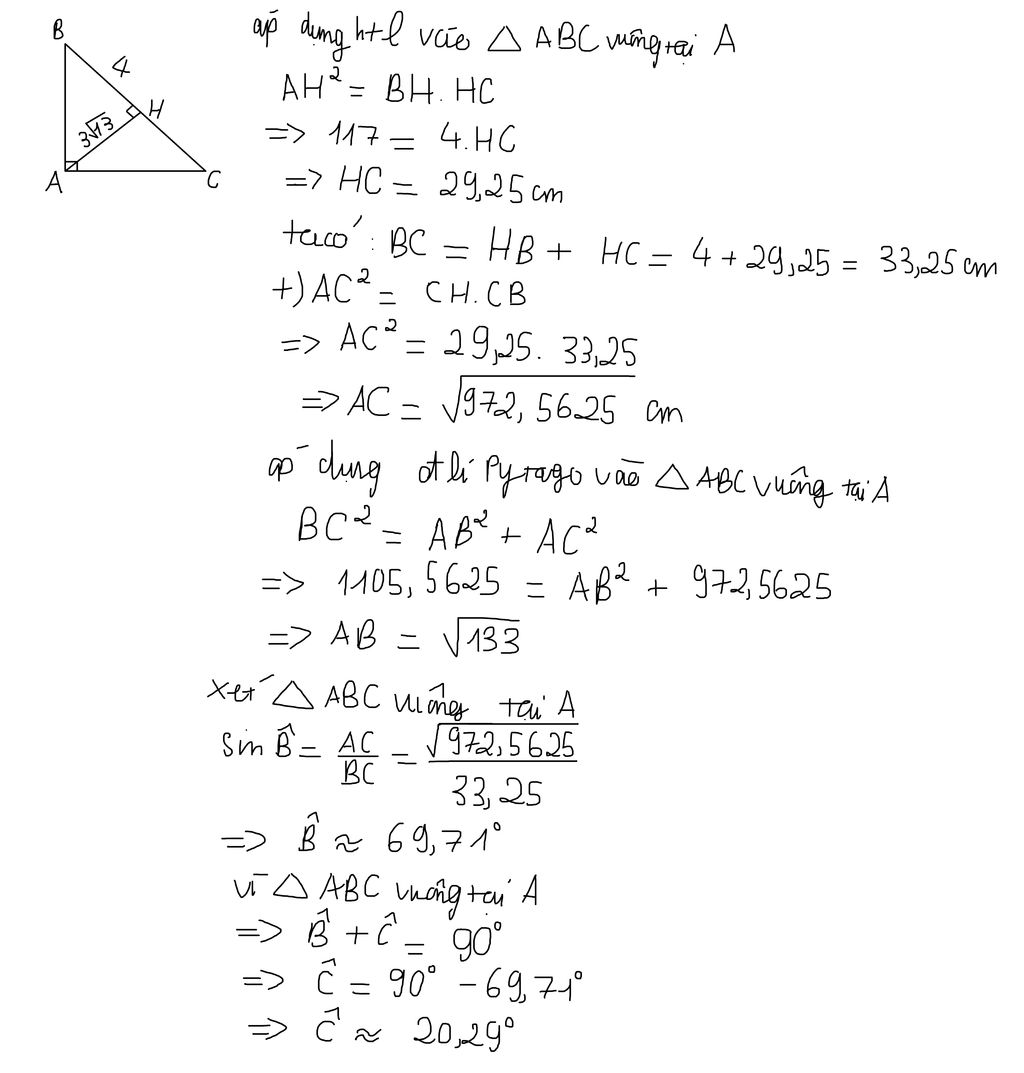 B
4
H
3√13
A
C
áp dụng htl vào △ ABC vuông tại A
AH² = BH . HC
=> 117 = 4.HC
=> HC = 29,25 cm
ta có : BC = HB + HC = 4 + 29,25 = 33,25 cm
+) AC² = CH.CB
=> AC² = 29,25 . 33,25
=> AC = √972,5625 cm
áp dụng đ lí Pytago vào △ ABC vuông tại A
BC² = AB² + AC²
=> 1105,5625 = AB² + 972,5625
=> AB = √133
xét △ ABC vuông tại A
Sin B̂ = AC/BC = √972,5625/33,25
=> B̂ ≈ 69,71°
vì △ ABC vuông tại A
=> B̂ + Ĉ = 90°
=> Ĉ = 90° - 69,71°
=> Ĉ ≈ 20,29°